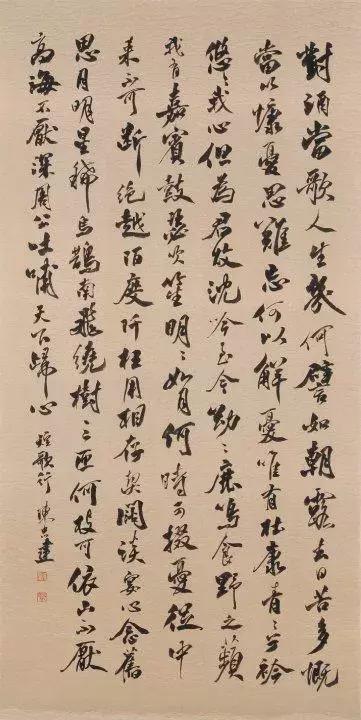 對酒當歌人生幾何譬如朝露去日苦多慨
當以慷憂思難忘何以解憂唯有杜康青々子衿
悠々我心但為君故沈吟至今呦々鹿鳴食野之蘋
我有嘉賓鼓瑟吹笙明々如月何時可掇憂從中
來不可斷絕越陌度阡枉用相存契闊談宴心念舊
恩月明星稀烏鵲南飛繞樹三匝何枝可依山不厭
高海不厭深周公吐哺天下歸心 短歌行 陳